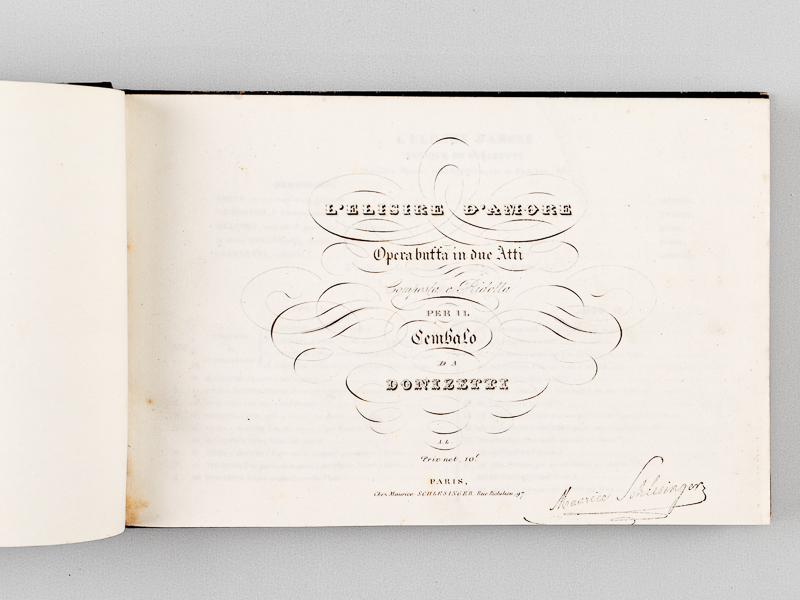 L'ELISIRE D'AMORE
Opera buffa in due Atti
Composta e Ridotta
PER IL
Cembalo
DA
DONIZETTI
A.L.
Prix net. 10f
PARIS,
Chez Maurice SCHLESINGER, Rue Richelieu, 97
Maurice Schlesinger